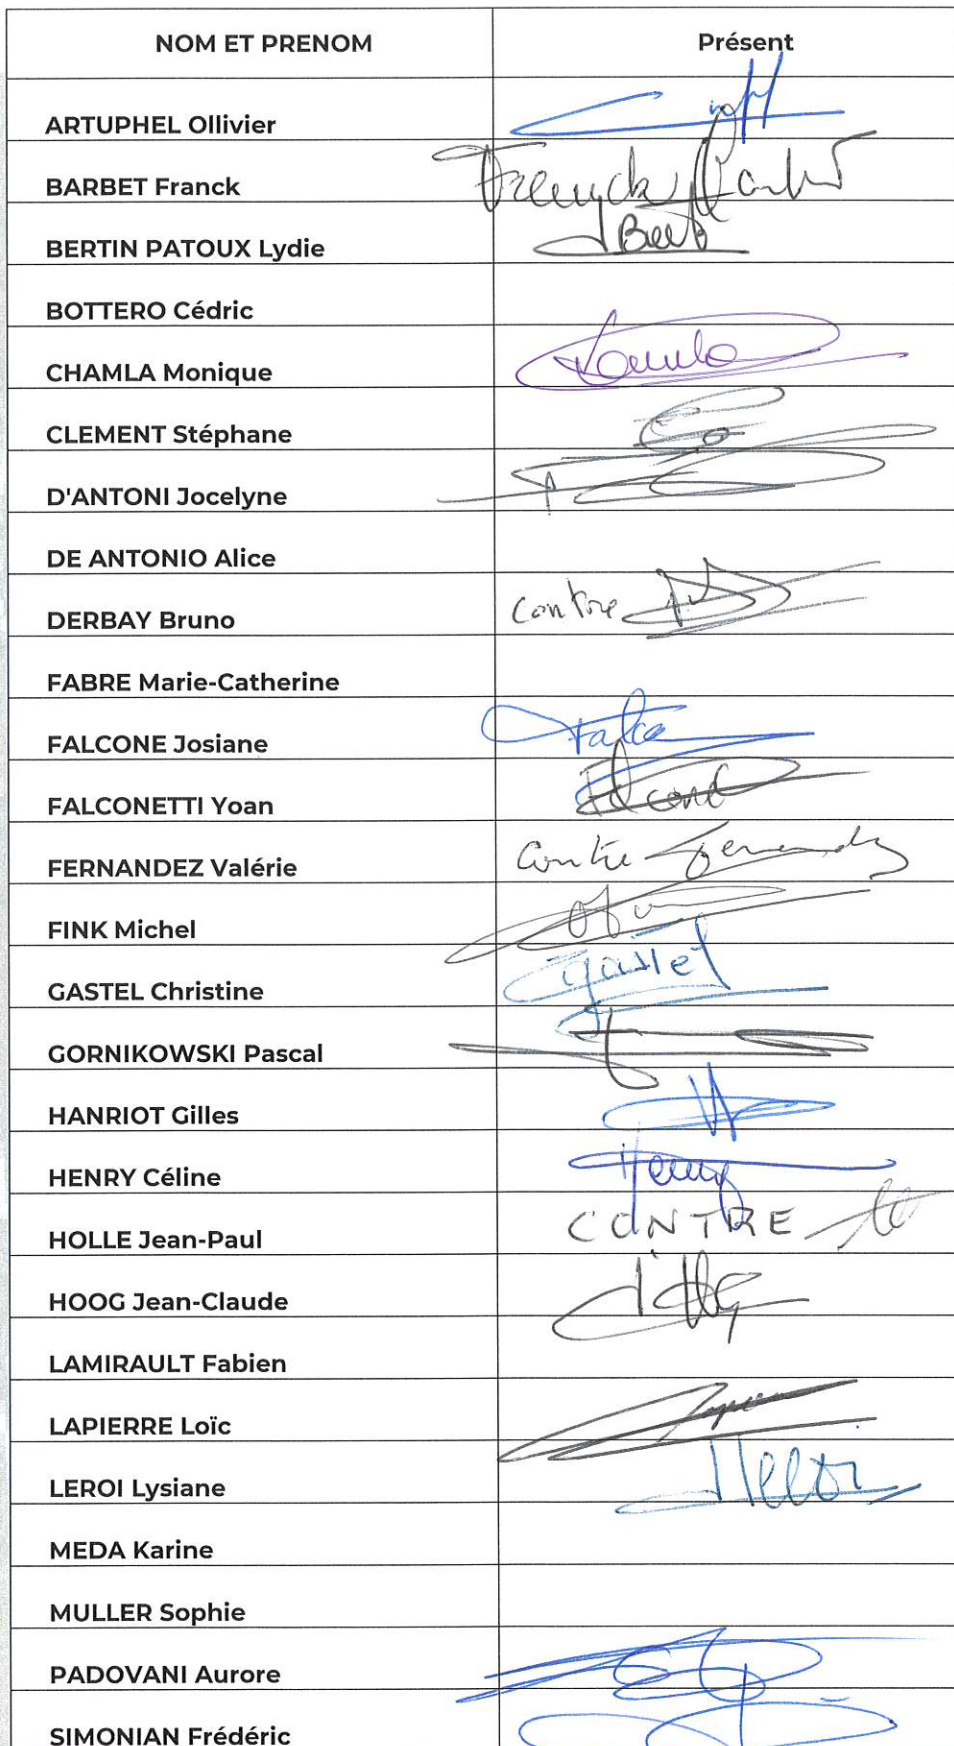 NOM ET PRENOM Présent
ARTUPHEL Ollivier
BARBET Franck Franck Barbet
BERTIN PATOUX Lydie
BOTTERO Cédric
CHAMLA Monique
CLEMENT Stéphane
D'ANTONI Jocelyne
DE ANTONIO Alice
DERBAY Bruno contre
FABRE Marie-Catherine
FALCONE Josiane
FALCONETTI Yoan
FERNANDEZ Valérie Contre Fernandez
FINK Michel
GASTEL Christine gastel
GORNIKOWSKI Pascal
HANRIOT Gilles
HENRY Céline Henry
HOLLE Jean-Paul CONTRE
HOOG Jean-Claude
LAMIRAULT Fabien
LAPIERRE Loïc
LEROI Lysiane
MEDA Karine
MULLER Sophie
PADOVANI Aurore
SIMONIAN Frédéric